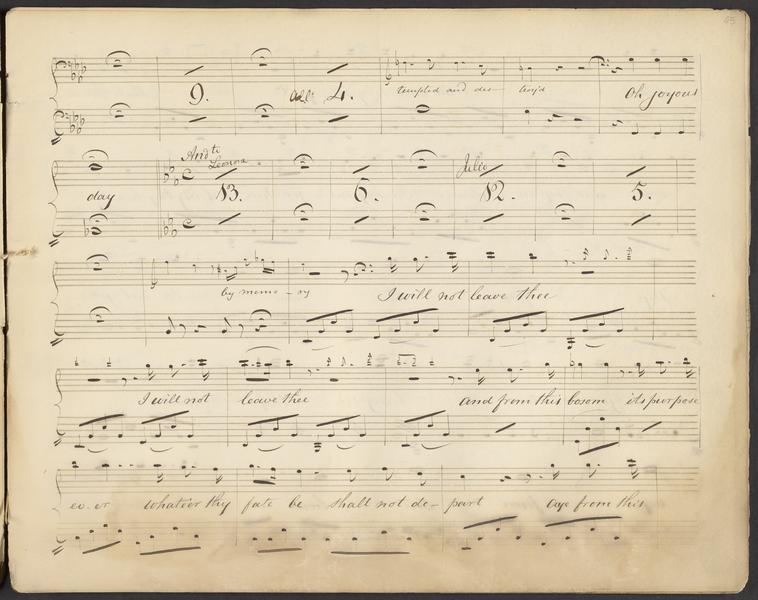 45
9. All° 4. tempted and des- troy'd Oh joyous
day And te Leonora 13. 6. Julio 12. 5.
by memo - ry I will not leave thee
I will not leave thee and from this bosom its purpose
ev-er whate'er thy fate be shall not de- part aye from this